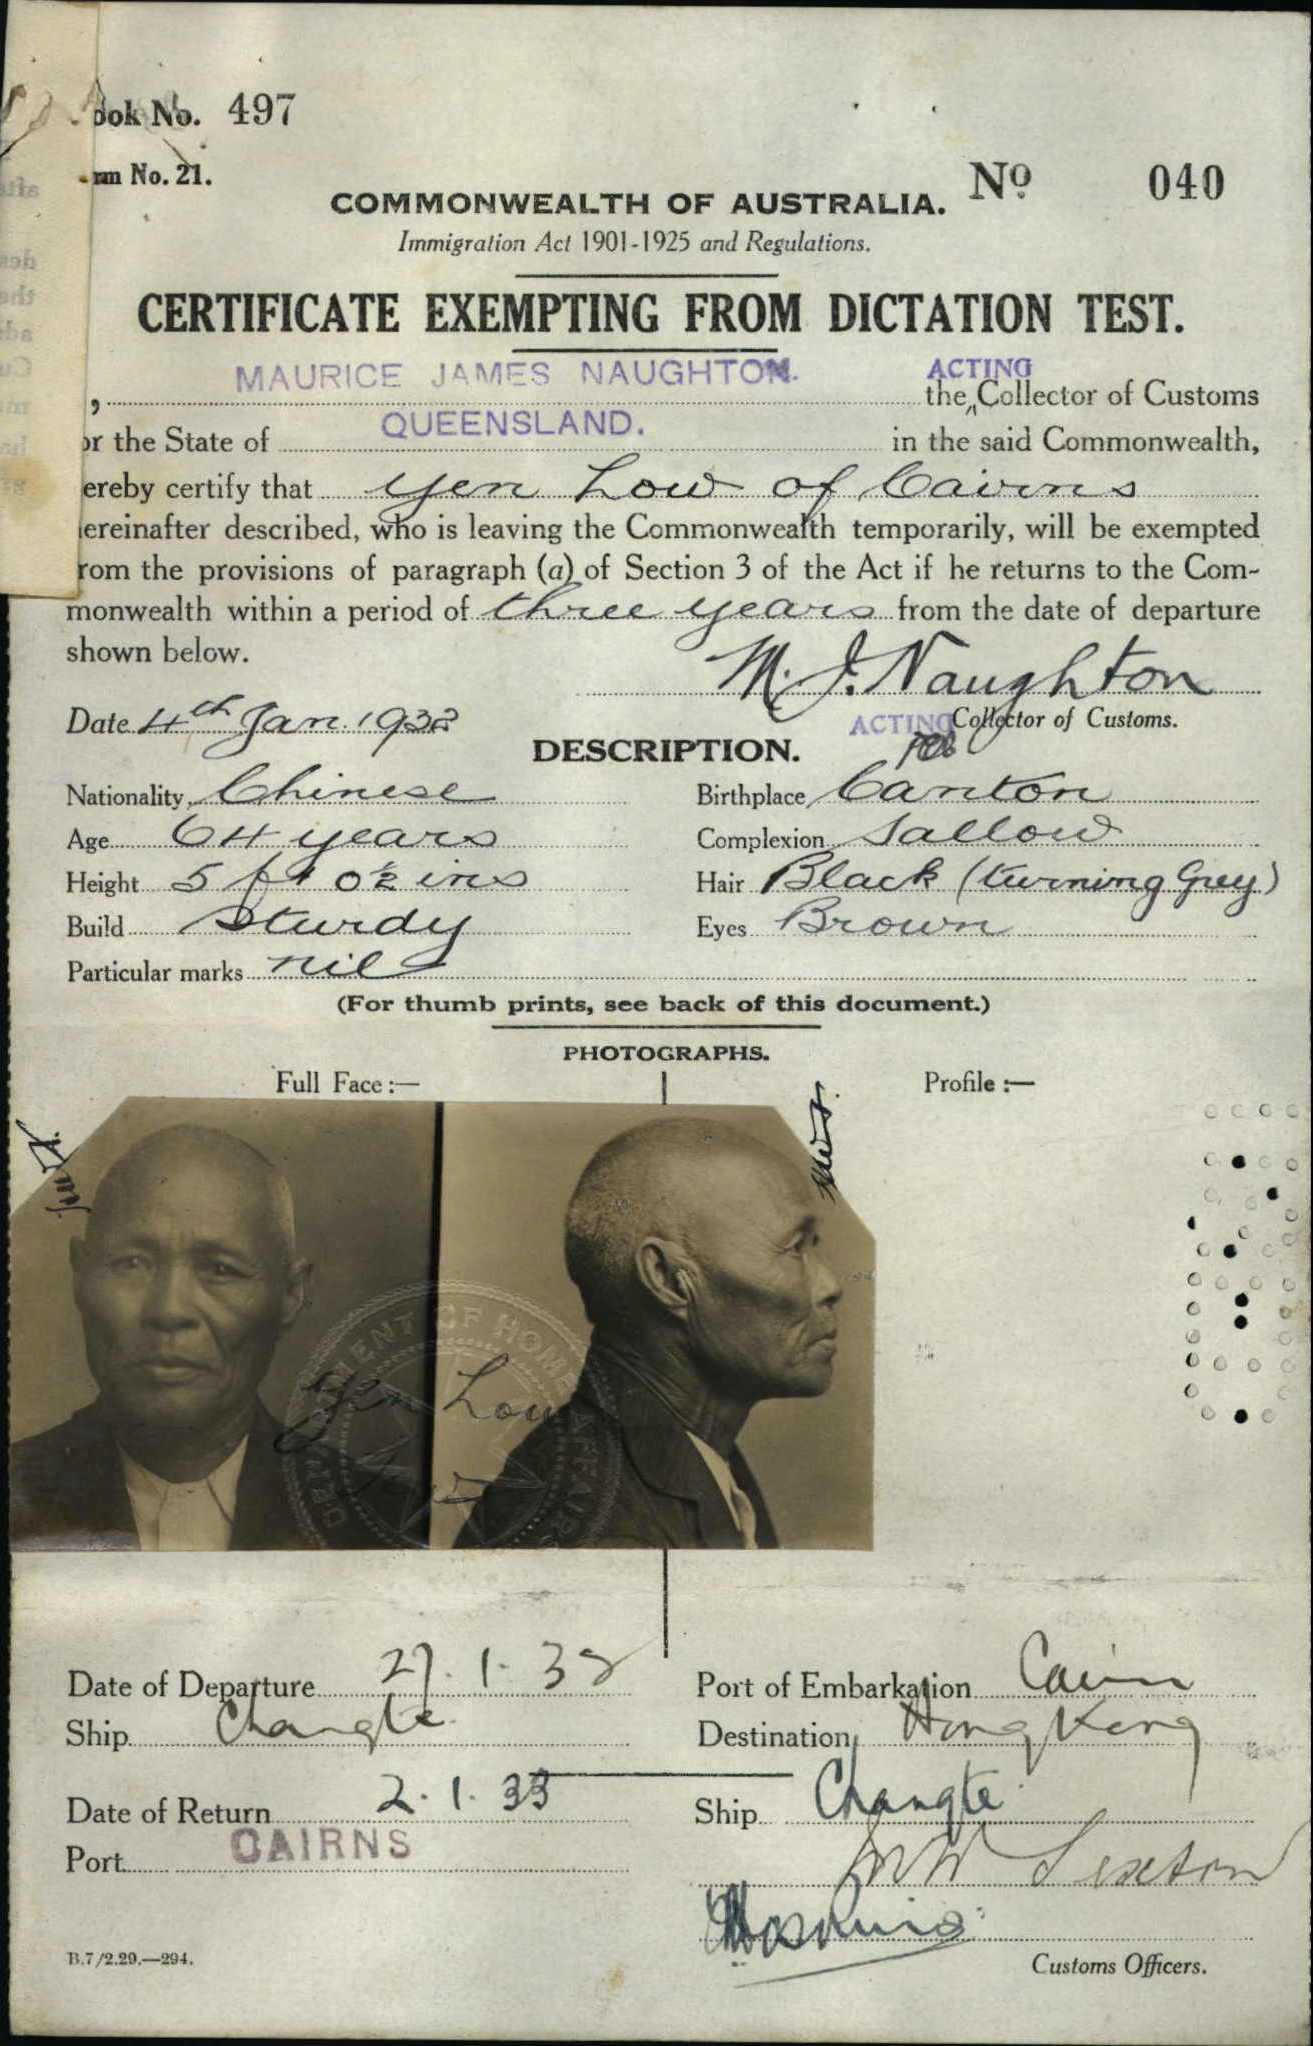 ook No. 497
rm No. 21.
No 040
COMMONWEALTH OF AUSTRALIA.
Immigration Act 1901-1925 and Regulations.
CERTIFICATE EXEMPTING FROM DICTATION TEST.
MAURICE JAMES NAUGHTON. ACTING
, the Collector of Customs
or the State of QUEENSLAND. in the said Commonwealth,
ereby certify that Yen Low of Cairns
ereinafter described, who is leaving the Commonwealth temporarily, will be exempted
rom the provisions of paragraph (a) of Section 3 of the Act if he returns to the Com-
monwealth within a period of three years from the date of departure
shown below.
M. J. Naughton
Date 4th Jan. 1932 ACTING Collector of Customs.
DESCRIPTION.
Nationality Chinese Birthplace Canton
Age 64 years Complexion Sallow
Height 5 ft 0½ ins Hair Black (turning Grey)
Build Sturdy Eyes Brown
Particular marks nil
(For thumb prints, see back of this document.)
PHOTOGRAPHS.
Full Face :— Profile :—
DEPARTMENT OF HOME AFFAIRS
Yen Low
Date of Departure 27. 1. 32 Port of Embarkation Cairns
Ship Changte Destination Hong Kong
Date of Return 2. 1. 33 Ship Changte
Port CAIRNS
Sexton
B.7/2.29.—294. Customs Officers.